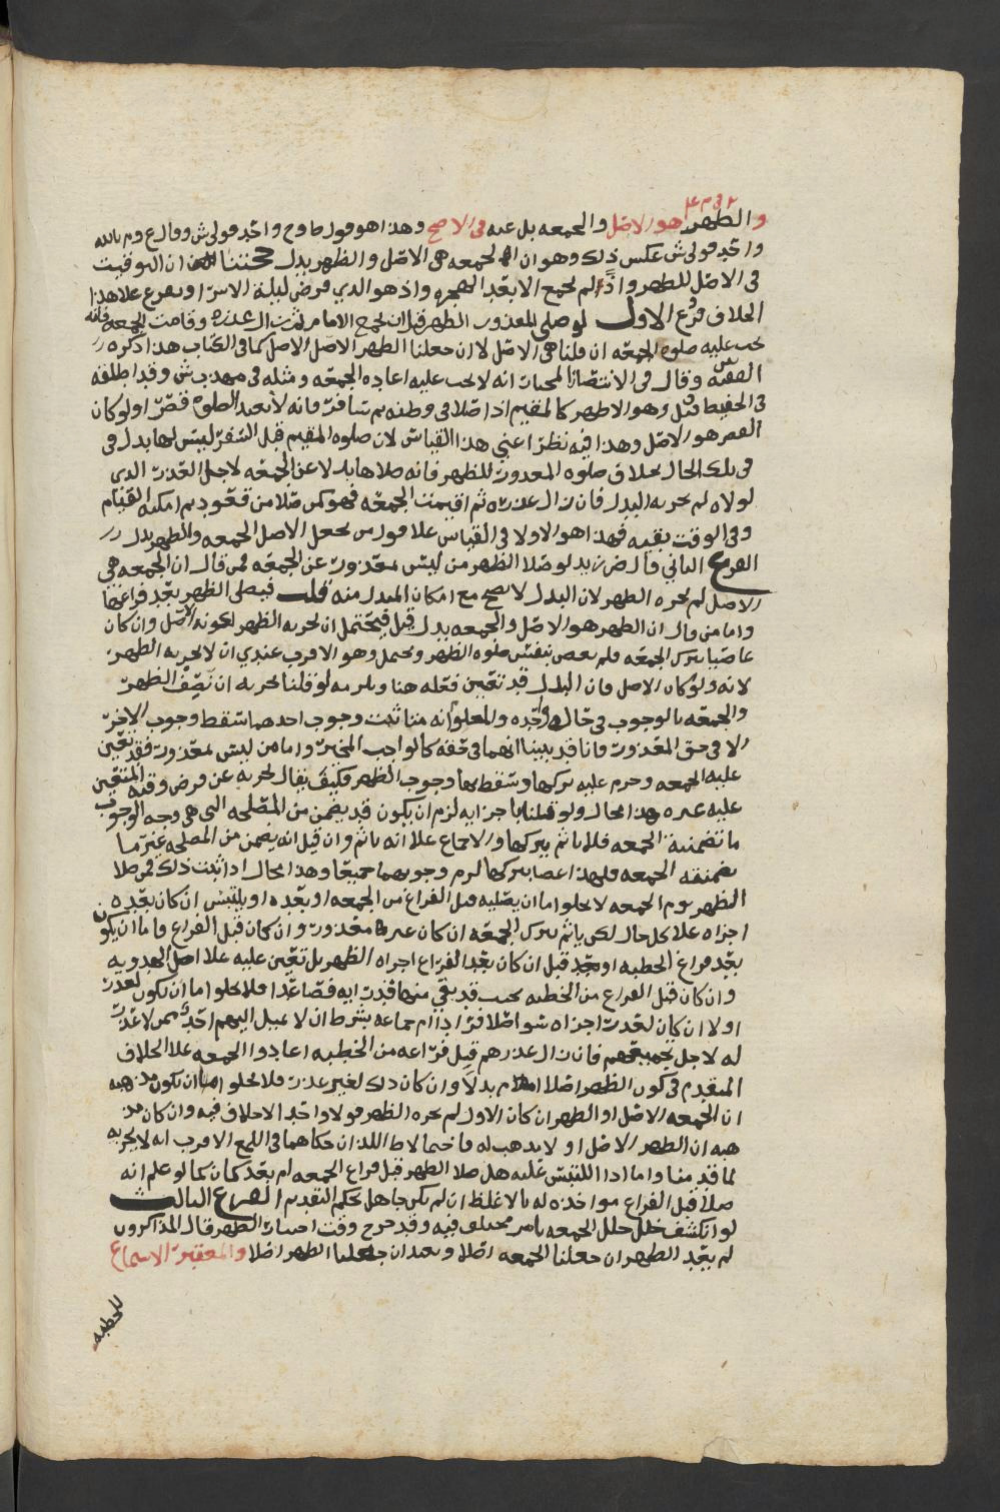 والظهر هو الاصل والجمعه بدل عنه في الاصح وهذا هو قول ط وح واحد قولي ش وقال ع وم بالله
واحد قولي ش عكس ذلك وهو ان الجمعه هي الاصل والظهر بدل حجتنا ان التوقيت
في الاصل للظهر واذ لم تجمع الا بعد الهجره واذ هو الذي فرض ليلة الاسرا ويتفرع علا هذا
الخلاف فرع الاول لو صلى المعذور الظهر قبل ان يجمع الامام ثم زال عذره وقامت الجمعه فانه
تجب عليه صلوه الجمعه ان قلنا هي الاصل لا ان جعلنا الظهر الاصل كما في الكتاب هذا ذكره
الفقيه س وقال في الانتصار المختار انه لا تجب عليه اعاده الجمعه ومثله في مهذب ش وقد اطلقه
في الحفيظ وهو الاظهر كالمقيم اذا صلا في وطنه ثم سافر فانه لا يعيد الصلوه قصرا ولو كان
القصر هو الاصل وهذا فيه نظر اعني هذا القياس لان صلوه المقيم قبل السفر ليس لها بدل في
في تلك الحال بخلاف صلوه المعذور للظهر فانه صلاها بدلا عن الجمعه لاجل العذر الذي
لولاه لم يجز به البدل فان زال عذره ثم اقيمت الجمعه فهو كمن صلا من قعود ثم امكنه القيام
وفي الوقت بقيه فهذا هو الاولا في القياس علا قول من يجعل الاصل الجمعه والظهر بدل
الفرع الثاني قال ض زيد لو صلا الظهر من ليس معذور عن الجمعه فمن قال ان الجمعه هي
الاصل لم يجزه الظهر لان البدل لا يصح مع امكان المبدل منه قلت فيصلى الظهر بعد فراغها
واما من قال ان الظهر هو الاصل والجمعه بدل قيل فيحتمل ان يجز به الظهر لكونه الاصل وان كان
عاصيا بترك الجمعه فلم يعص بنفس صلوه الظهر ويحتمل وهو الاقرب عندي ان لا يجز به الظهر
لانه ولو كان الاصل فان البدل قد تعين فعله هنا ويلزمه لو قلنا يجز به ان يصف الظهر
والجمعه بالوجوب في حال واحده والمعلوم انه متا ثبت وجوب احدهما سقط وجوب الاخر
الا في حق المعذور فانا قد بينا انهما في حقه كالواجب المخير واما من ليس بمعذور فقد تعين
عليه الجمعه وحرم عليه تركها وسقط بها وجوب الظهر فكيف يقال يجز به عن فرض وقته المتعين
عليه غيره هذا محال ولو قلنا باجزايه لزم ان يكون قد يضمن من المصلحه التي هي وجه الوجوب
ما تضمنته الجمعه فلا ياثم بتركها والاجماع علا انه ياثم وان قيل انه يضمن من المصلحه غير ما
تضمنته الجمعه فلهذا اعصا بتركها لزم وجوبهما جميعا وهذا محال اذا ثبت ذلك فمن صلا
الظهر يوم الجمعه لا يخلو اما ان يصليه قبل الفراغ من الجمعه او بعده او يلتبس ان كان بعده
اجزاه علا كل حال لكن ياثم بترك الجمعه ان كان غير معذور وان كان قبل الفراغ فاما ان يكون
بعد فراغ الخطبه او قبل ان كان بعد الفراغ اجزاه الظهر بل تعين عليه علا اصل الهدويه
وان كان قبل الفراغ من الخطبه بحيث قد بقي منها قدر ايه فصاعدا فلا يخلو اما ان يكون لعذر
او لا ان كان لعذر اجزاه سوا صلا فرادا ام جماعه بشرط ان لا يميل اليهم احد ممن لا عذر
له لاجل تجميعهم فان زال عذرهم قبل فراغه من الخطبه اعادوا الجمعه علا الخلاف
المتقدم في كون الظهر اصلا ام بدلا وان كان ذلك لغير عذر فلا يخلو اما ان يكون مذهبه
ان الجمعه الاصل او الظهر ان كان الاول لم يجزه الظهر قولا واحدا لا خلاف فيه وان كان مذ
هبه ان الظهر الاصل او لا مذهب له فاحتمالا ط اللذان حكاهما في اللمع الاقرب انه لا يجز به
لما قدمنا واما اذا التبس عليه هل صلا الظهر قبل فراغ الجمعه ام بعد كان كما لو علم انه
صلا قبل الفراغ مواخذه له بالاغلظ ان لم يكن جاهل بحكم التقديم الفرع الثالث
لو انكشف خلل الجمعه بامر مختلف فيه وقد خرج وقت اختيار الظهر قال المذاكرون
لم يعد الظهر ان جعلنا الجمعه اصلا ويعد ان جعلنا الظهر اصلا والمعتبر الاستماع
للخطبه